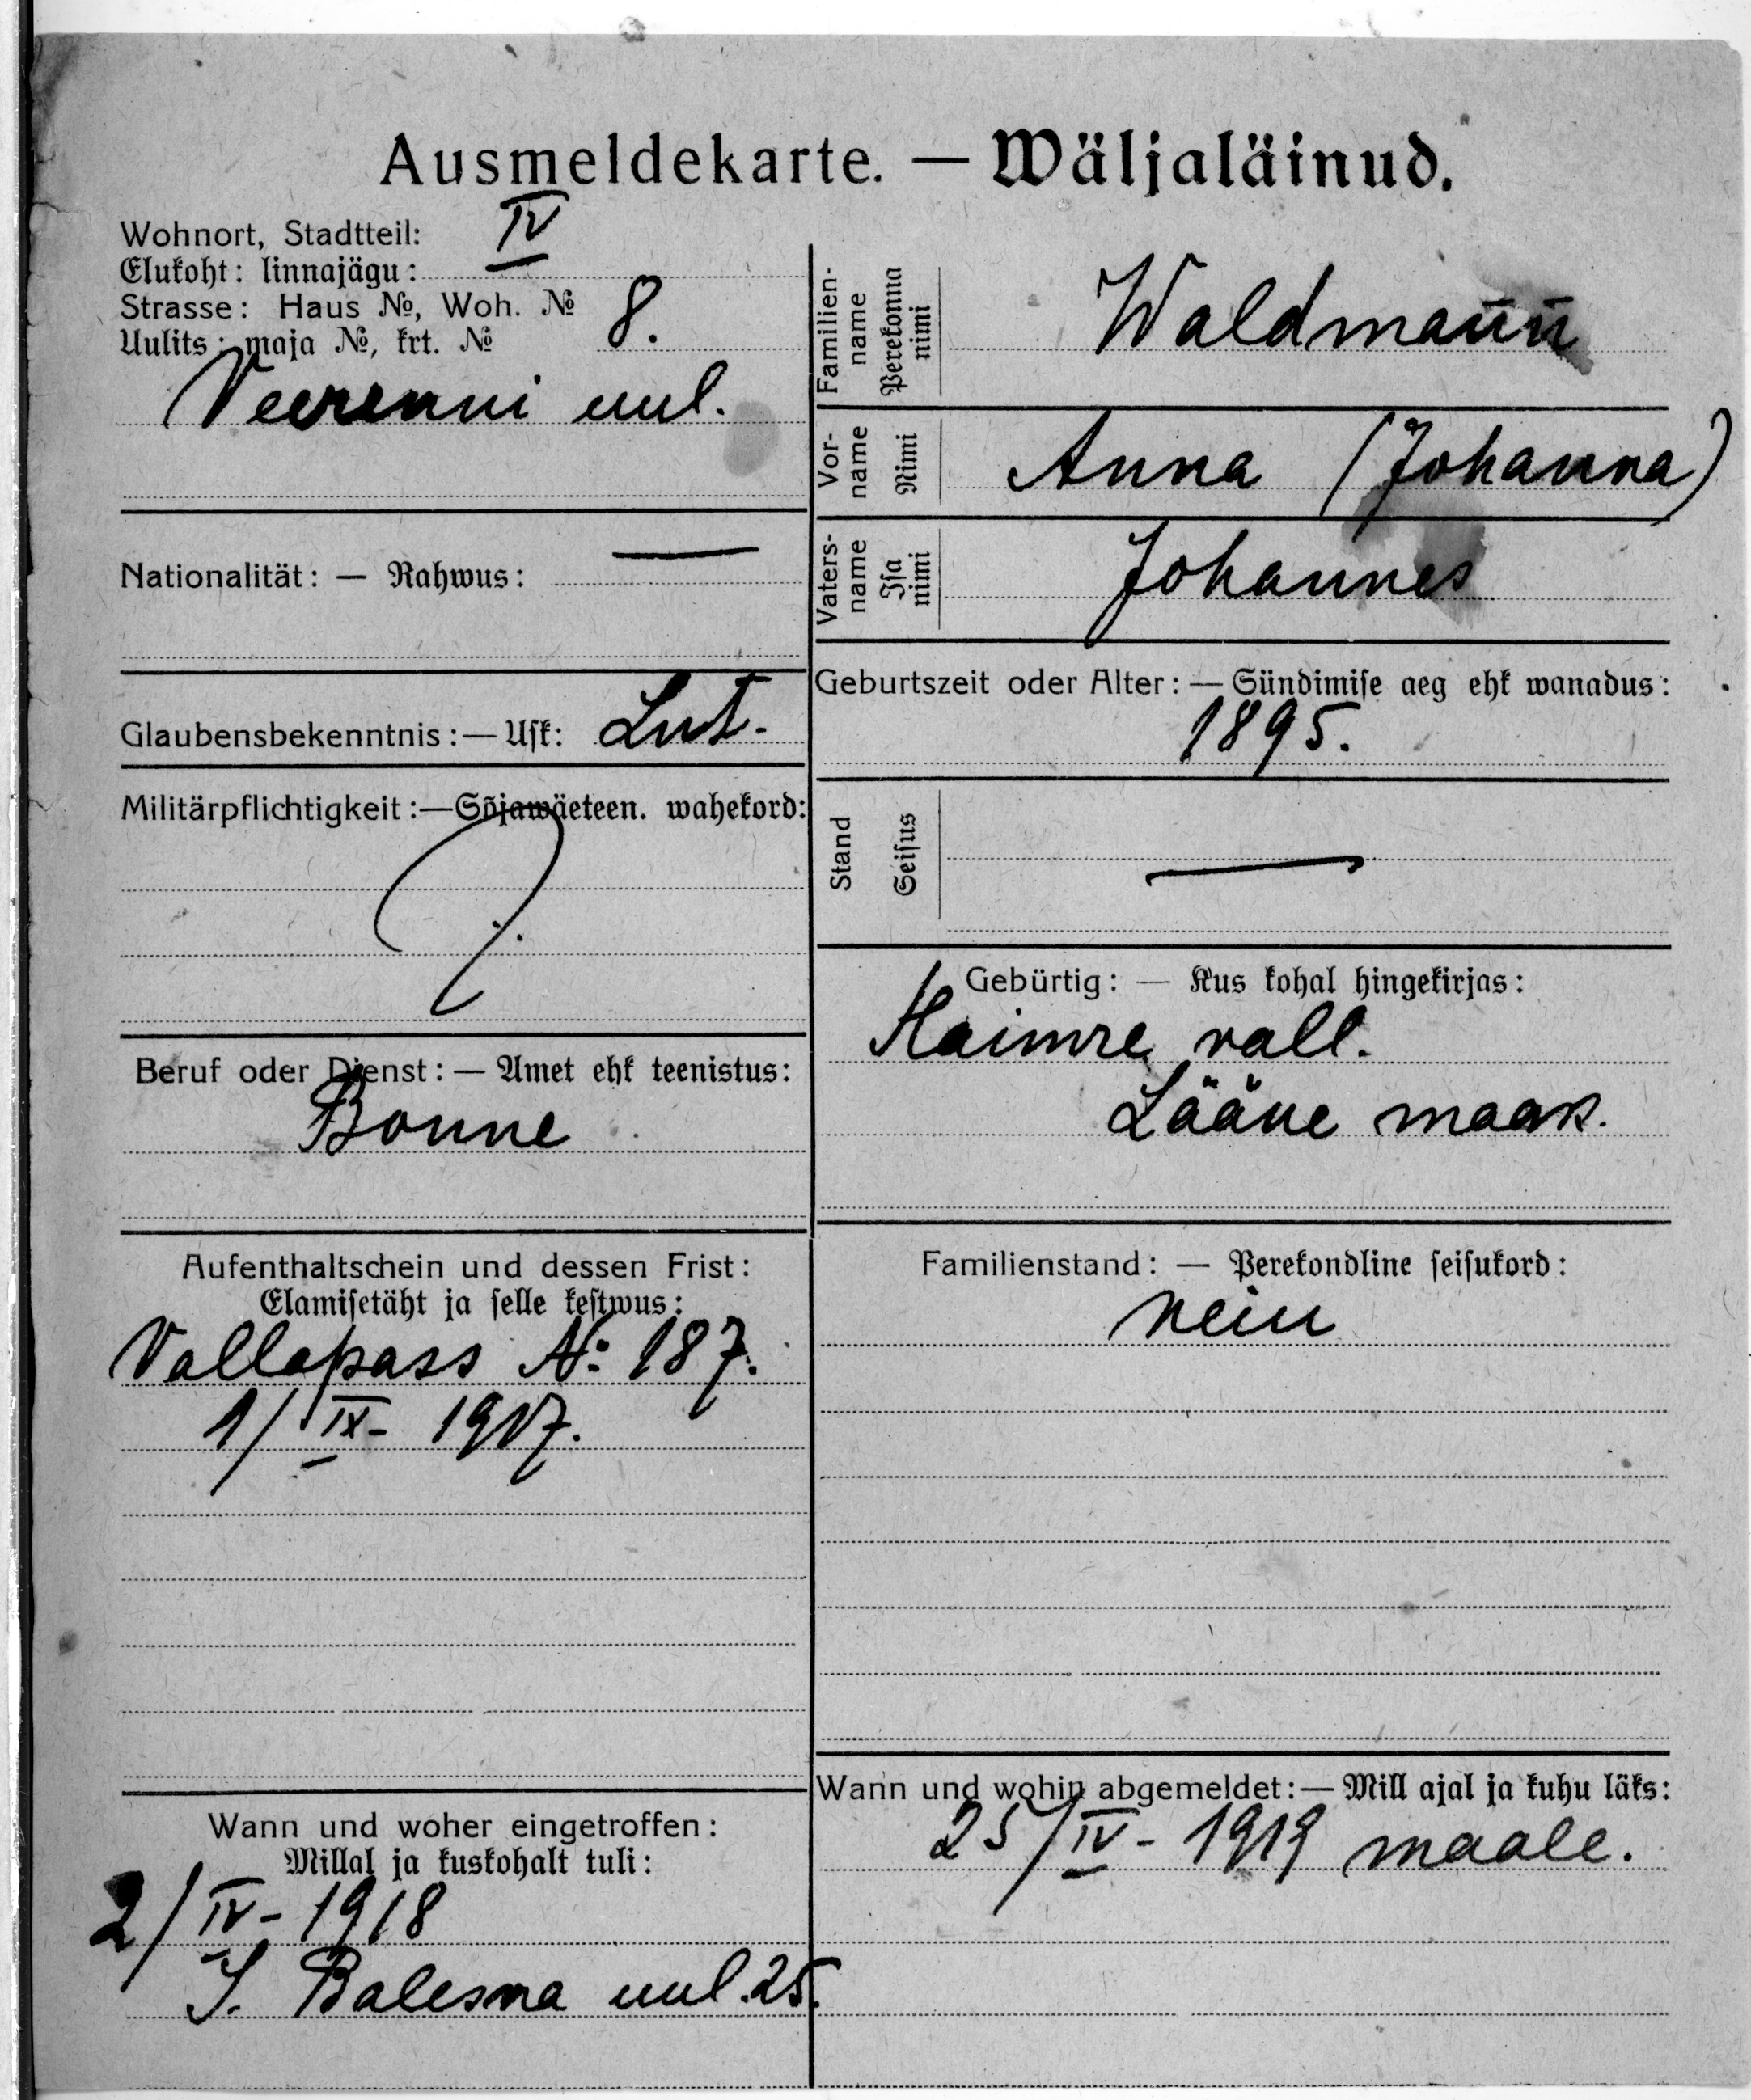 Ausmeldekarte. — Wäljaläinud.
Wohnort, Stadtteil: IV
Elukoht: linnajägu:
Strasse: Haus №, Woh. № 8.
Uulits: maja №, krt. №
Veerenni uul.
Nationalität: — Rahwus: —
Glaubensbekenntnis: — Usk: Lut.
Militärpflichtigkeit: — Sõjawäeteen. wahekord:
Beruf oder Dienst: — Amet ehk teenistus:
Bonne
Aufenthaltschein und dessen Frist:
Elamisetäht ja selle kestwus:
Vallapass №: 187.
1/IX- 1917.
Wann und woher eingetroffen:
Millal ja kuskohalt tuli:
2/IV- 1918
uul. 25.
Familien-
name
Perekonna
nimi
Waldmann
Vor-
name
Nimi
Anna (Johanna)
Vaters-
name
Isa
nimi
Johannes
Geburtszeit oder Alter: — Sündimise aeg ehk wanadus:
1895.
Stand
Seisus
—
Gebürtig: — Kus kohal hingekirjas:
Haimre vall.
Lääne maak.
Familienstand: — Perekondline seisukord:
nein
Wann und wohin abgemeldet: — Mill ajal ja kuhu läks:
25/IV- 1919 maale.